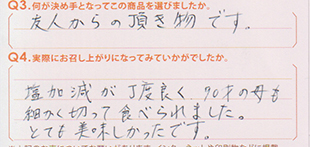 Q3.何が決め手となってこの商品を選びましたか。
友人からの頂き物です。
Q4.実際にお召し上がりになってみていかがでしたか。
塩加減が丁度良く、90才の母も
細かく切って食べられました。
とても美味しかったです。